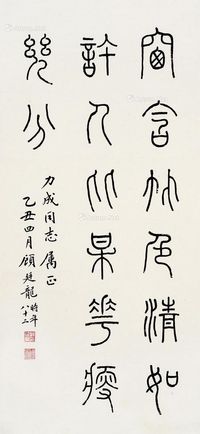 窗含竹色清如
許人比某花瘦
幾分
力成同志属正
乙丑四月顧廷龍時年八十二